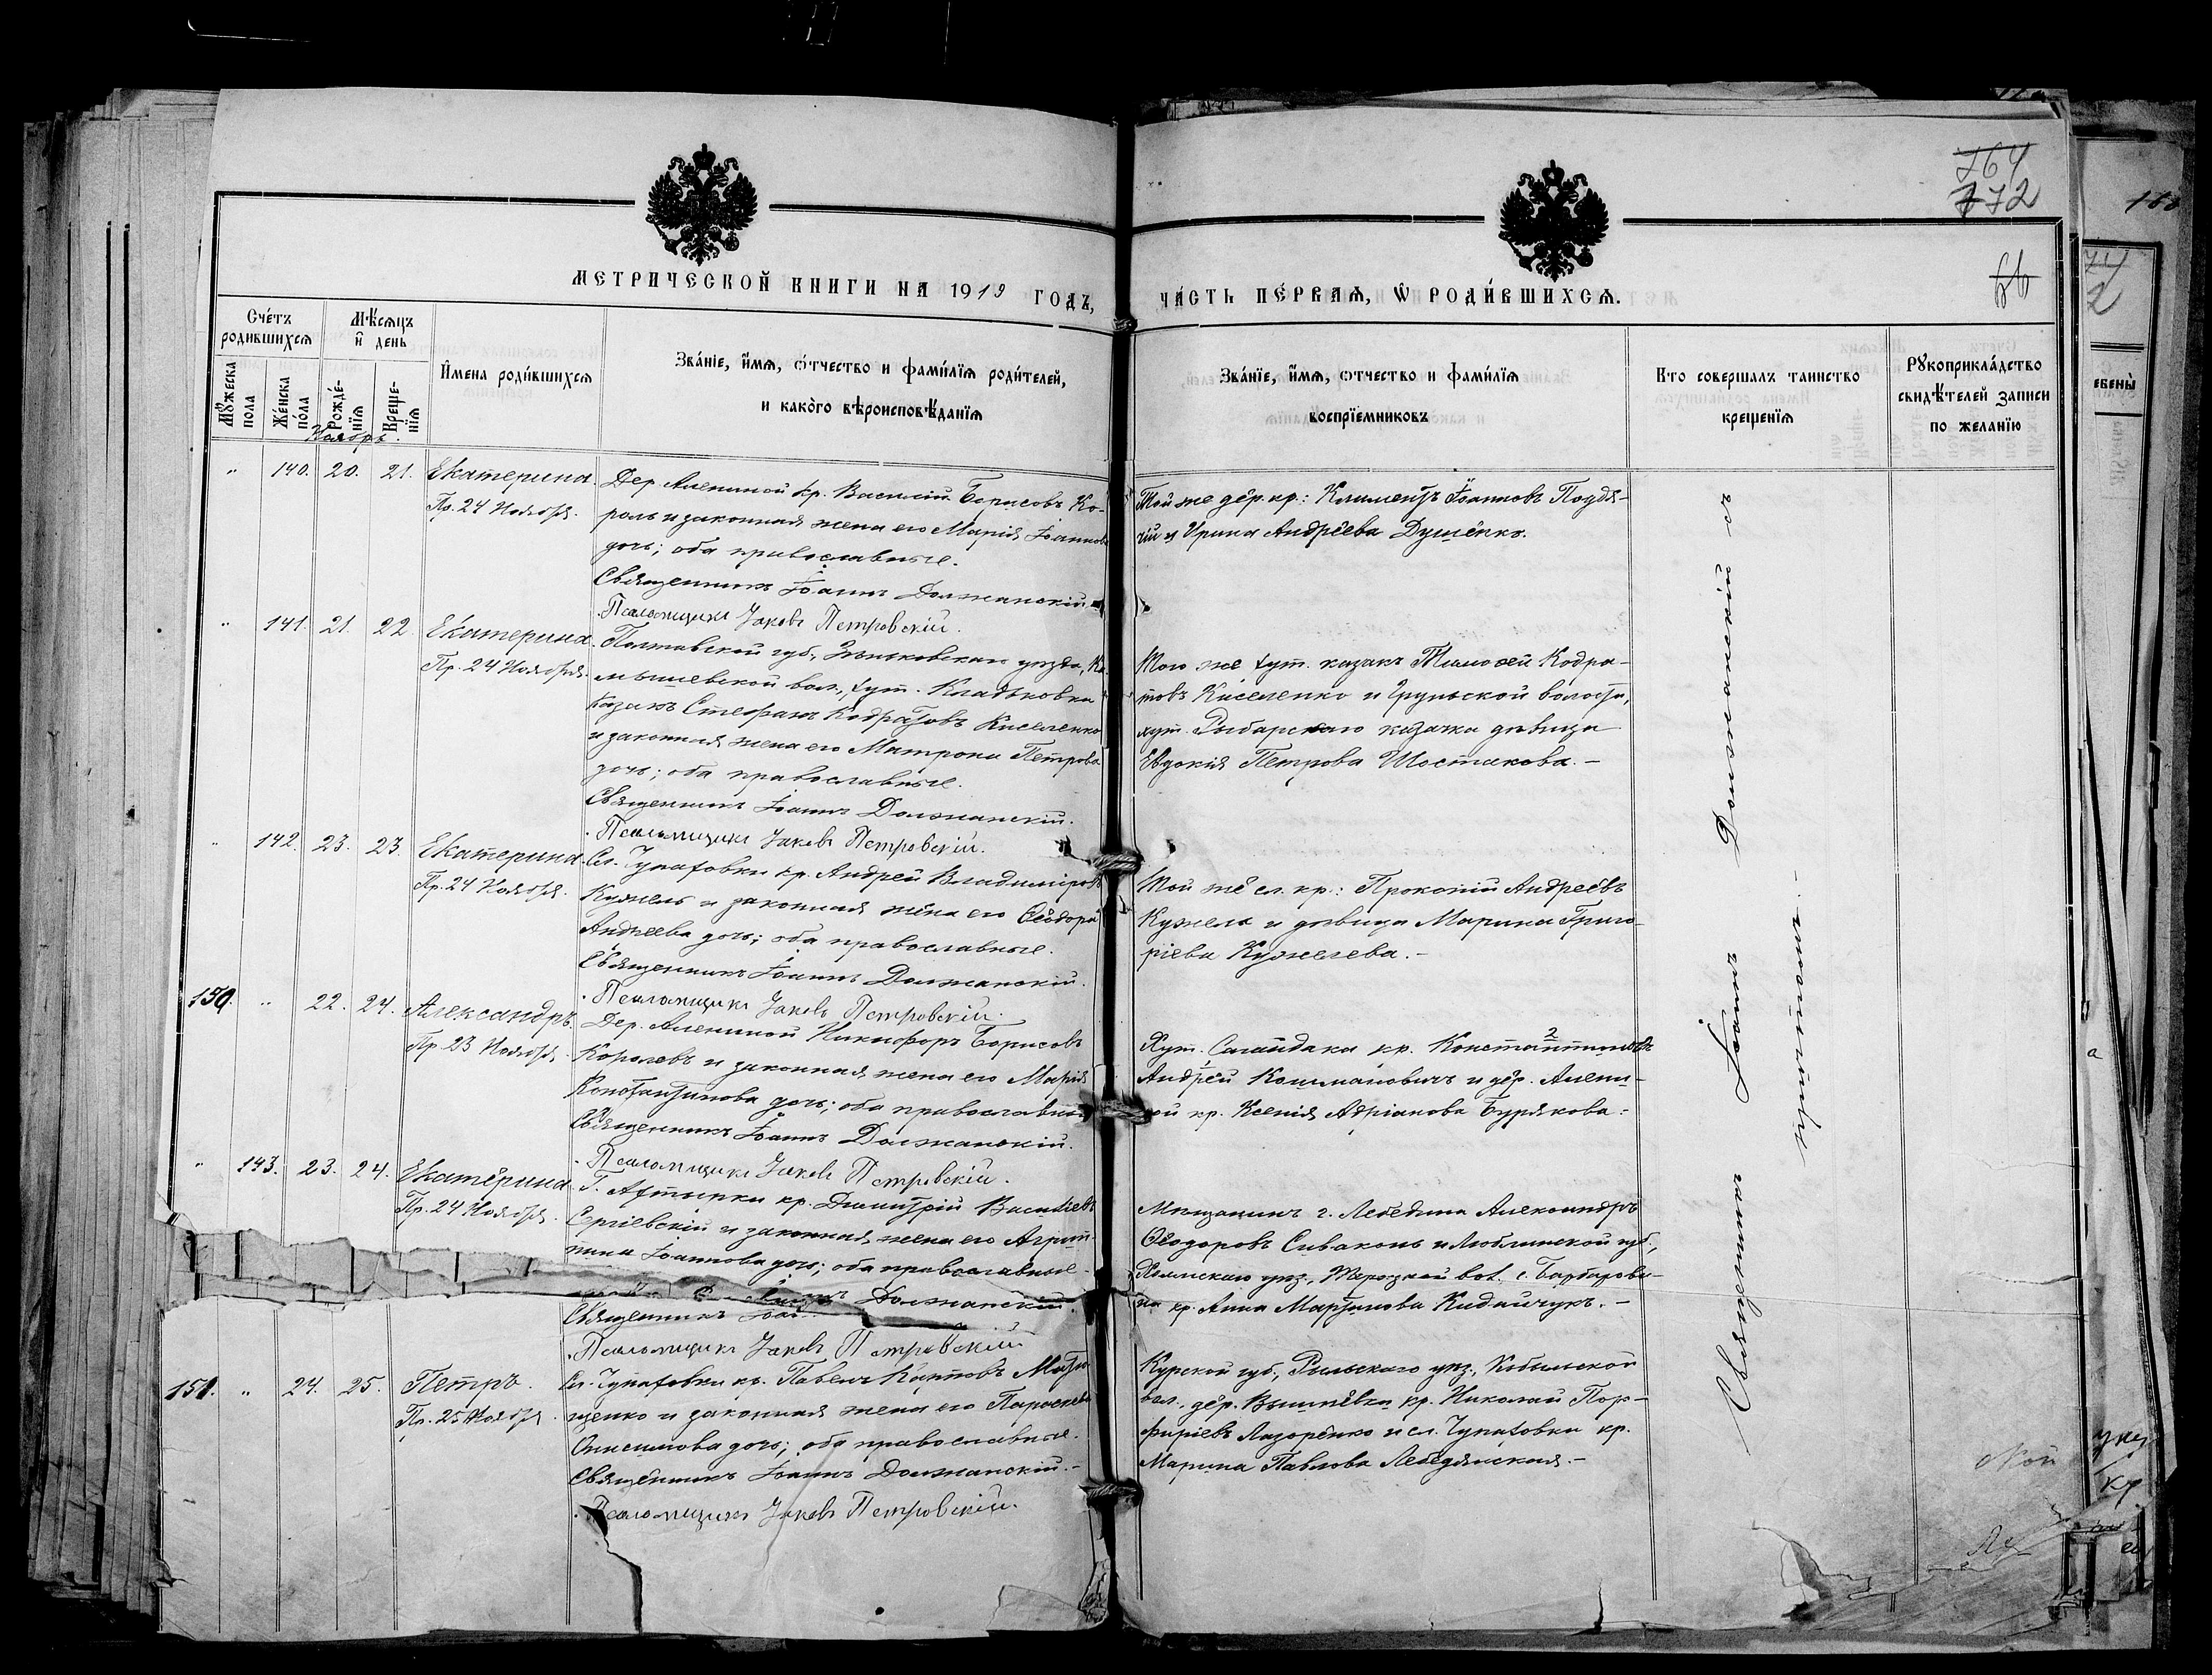 764
772
66
МЕТРИЧЕСКОЙ КНИГИ НА 1919 ГОДЪ, ЧА́СТЬ ПЕ́РВАѦ, Ѡ РОДИ́ВШИХСѦ.
Сче́тъ родившихсѧ
Мѣ́сѧцъ и̂ день
Мꙋжеска пола
Же́нска по́ла
Рожде́-нїѧ
Креще-нїѧ
И́мена роди́вшихсѧ
Зва́нїе, и́мѧ, ѻ́тчество и фами́лїѧ роди́телей,
и како́го вѣроисповѣ́данїѧ
Зва́нїе, и́мѧ, ѻтчество и фами́лїѧ
воспрїемниковъ
Кто совершалъ таинство
крещенїѧ
Рꙋкоприкла́дство
свидѣтелей записи
по желанїю
Ноябрь.
" 140. 20. 21. Екатерина.
Пр. 24 Ноября.
Дер. Алениной кр. Василій Борисовъ Ко-
роль и законная жена его Марія Іоаннова
дочь; оба православные.
Священникъ Іоаннъ Должанскій
Псаломщикъ Іаковъ Петровскій.
Той же дер. кр.: Климентъ Іоанновъ Поддя-
чій и Ирина Андреева Душенко.
" 141. 21. 22 Екатерина.
Пр. 24 Ноября.
Полтавской губ., Зѣньковскаго уѣзда,
вол., хут. Кладьковка
Казакъ Стефанъ Кодратовъ Киселенко
и законная жена его Матрона Петрова
дочь; оба православные.
Священникъ Іоаннъ Должанскій.
Псаломщикъ Іаковъ Петровскій.
Того же хут. казакъ Тимофей Кодра-
товъ Киселенко и Грунской волости,
хут. Рыбарскаго казачка дѣвица
Евдокія Петрова Шостакова. —
" 142. 23. 23. Екатерина.
Пр. 24 Ноября.
Сл. Чупаховки кр. Андрей Владиміровъ
Кужель и законная жена его Ѳеодора
Андреева дочь; оба православные.
Священникъ Іоаннъ Должанскій.
Псаломщикъ Іаковъ Петровскій.
Той же сл. кр.: Прокопій Андреевъ
Кужель и дѣвица Марина Григо-
ріева Кужелева. —
150. " 22. 24. Александръ.
Пр. 23 Ноября
Дер. Алениной Никифоръ Борисовъ
Королевъ и законная жена его Марія
Константинова дочь; оба православные
Священникъ Іоаннъ Должанскій.
Псаломщикъ Іаковъ Петровскій.
Хут. Сагайдака кр. Константиновъ
Андрей и дер. Алени-
ной кр. Ксенія Адріанова Бурякова.
" 143. 23. 24. Екатерина.
Пр. 24 Ноября.
Г. Ахтырки кр. Димитрій Васильевъ
Сергіевскій и законная жена его Агрип-
пина Іоаннова дочь; оба православные.
Священникъ Должанскій.
Псаломщикъ Іаковъ Петровскій
Мѣщанинъ г. Лебедина Александръ
Ѳеодоровъ Сиваконь и Люблинской губ.,
Холмскаго уѣз., вол. с.
кр. Анна Мартинова Кидайчукъ. —
151. " 24. 25. Петръ.
Пр. 25 Ноября
Сл. Чупаховки кр. Павелъ Карповъ
щенко и законная жена его Параскева
Онисимова дочь; оба православные.
Священникъ Іоаннъ Должанскій. —
Псаломщикъ Іаковъ Петровскій.
Курской губ., Рыльскаго уѣз., Кобыльской
вол., дер. Вышнёвки кр. Николай Пор-
фиріевъ Лазоренко и сл. Чупаховки кр.
Марина Павлова Лебедянская. —
Священникъ Іоаннъ Должанскій съ
причтомъ. —